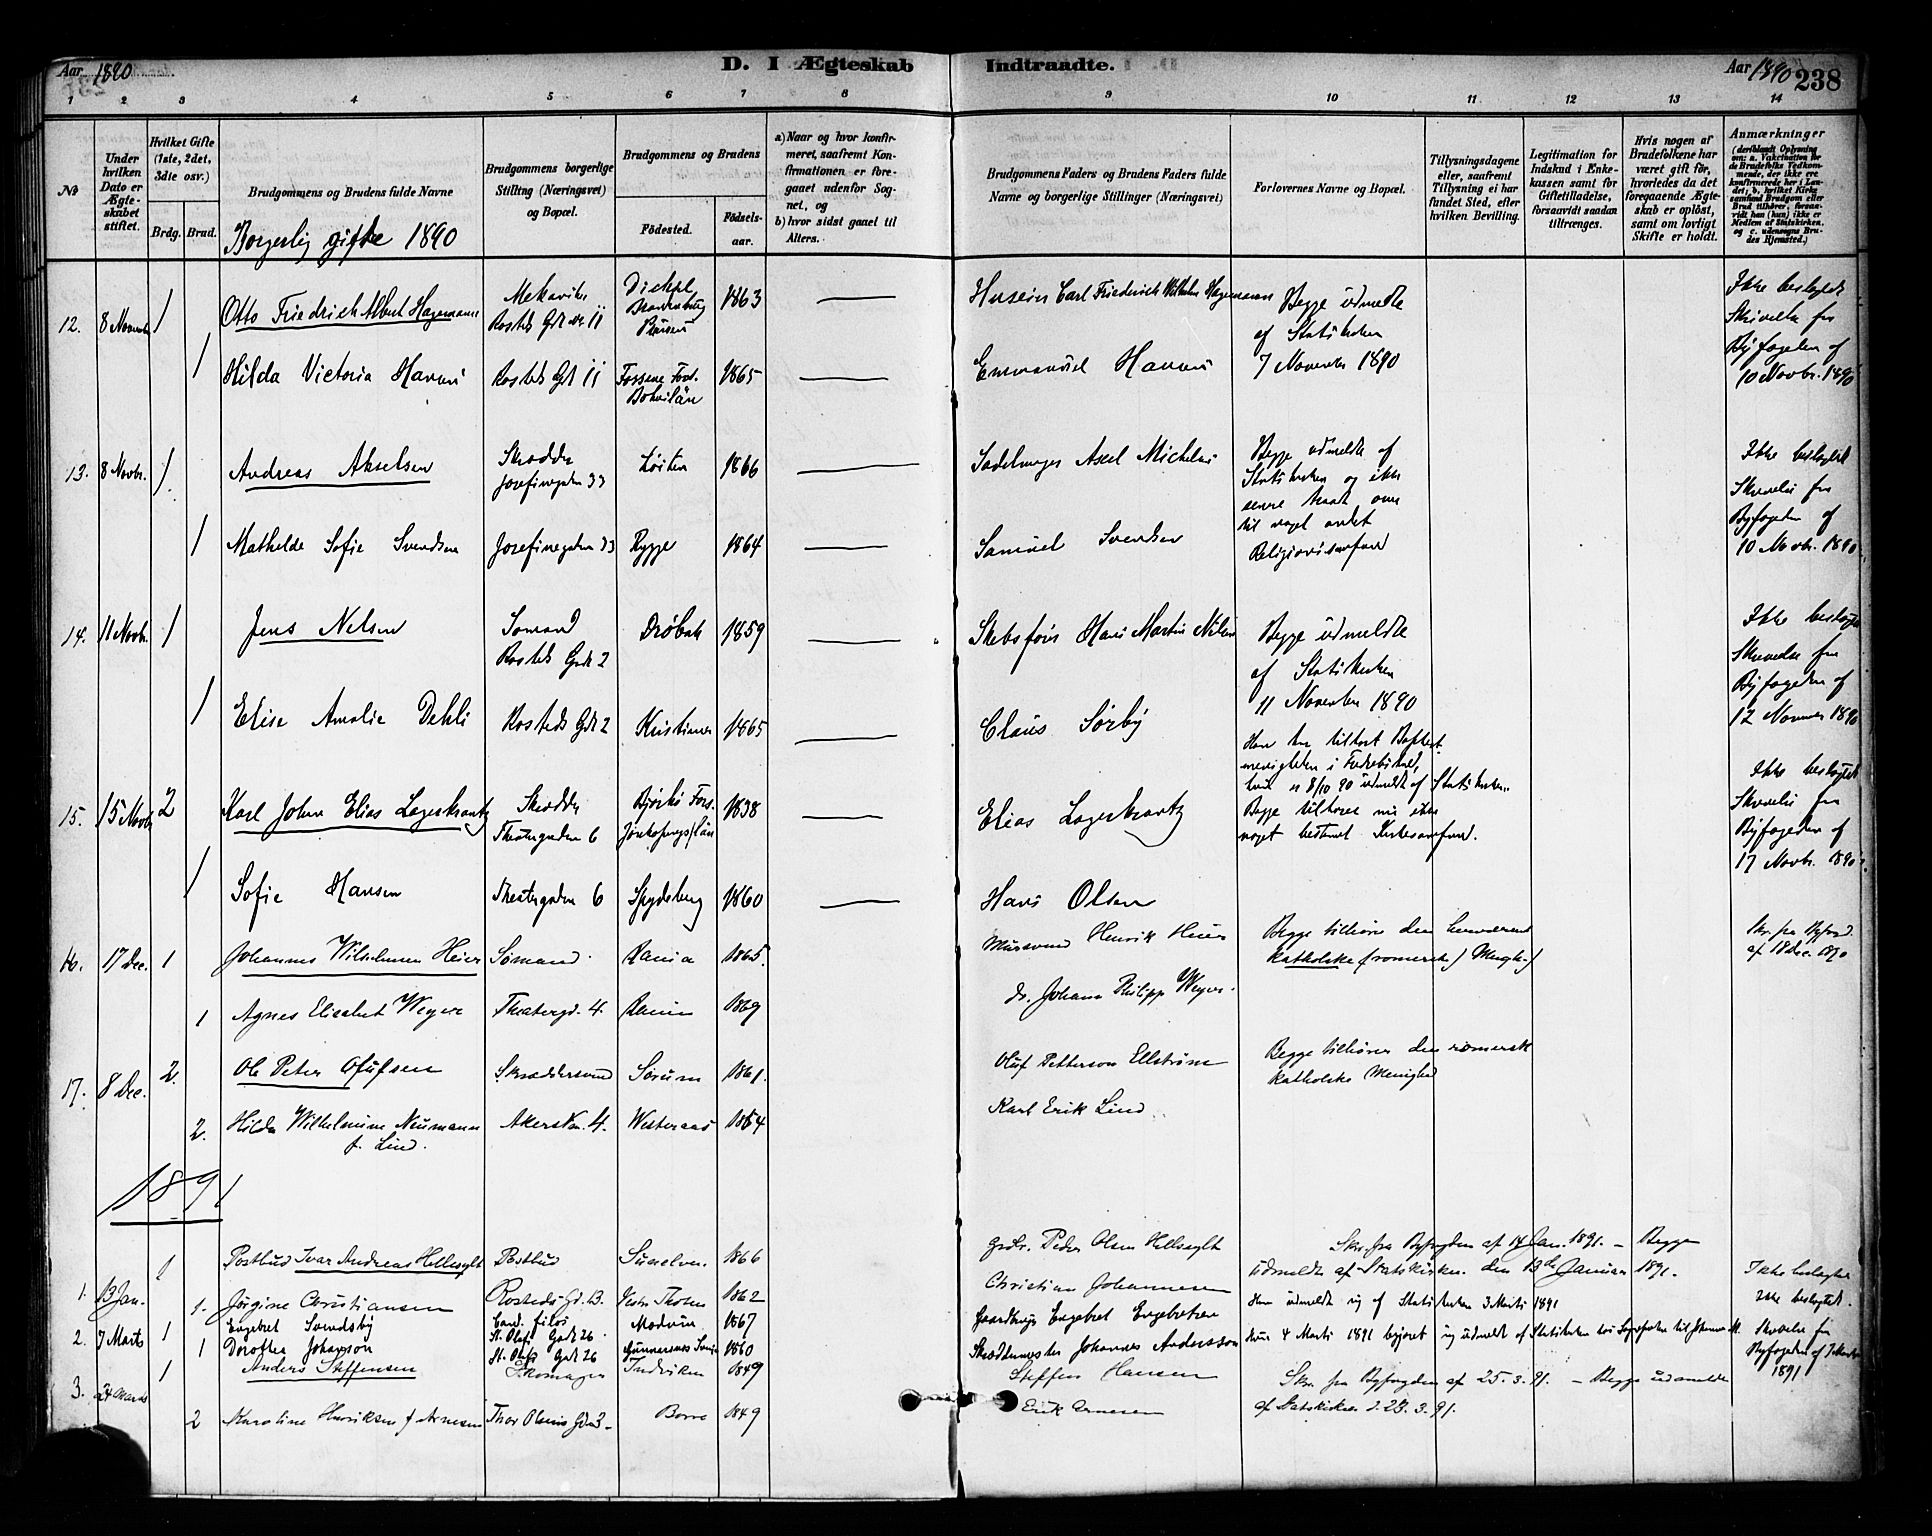 Aar 1890
D. I Ægteskab Indtraadte.
Aar 1890 238
1 2 3 4 5 6 7 8 9 10 11 12 13 14
No
Under hvilken Dato er Ægteskabet stiftet.
Hvilket Gifte (1ste, 2det, 3die osv.)
Brdg. Brud.
Brudgommens og Brudens fulde Navne
Brudgommens borgerlige Stilling (Næringsvei) og Bopæl.
Brudgommens og Brudens
Födested.
Födselsaar.
a) Naar og hvor konfirmeret, saafremt Konfirmationen er foregaaet udenfor Sognet, og
b) hvor sidst gaaet til Alters.
Brudgommens Faders og Brudens Faders fulde Navne og borgerlige Stillinger (Næringsvei)
Forlovernes Navne og Bopæl.
Tillysningsdagene eller, saafremt Tillysning ei har fundet Sted, efter hvilken Bevilling.
Legitimation for Indskud i Enkekassen samt for Giftetilladelse, forsaavidt saadan tiltrænges.
Hvis nogen af Brudefolkene har været gift för, hvorledes da det foregaaende Ægteskab er oplöst, samt om lovligt Skifte er holdt.
Anmærkninger (deriblandt Oplysning om: a. Vakcination for de Brudefolks Vedkommende, der ikke ere konfirmerede her i Landet; b. hvilket Kirkesamfund Brudgom eller Brud tilhörer, forsaavidt han (hun) ikke er Medlem af Statskirken, og c. udensogns Brudes Hjemsted.)
Borgerlig gifte 1890
12. 8 Novembr 1 Otto Friedrich Albert Hagemann
Rosteds Gd. No 11
1863
Carl Friederich Wilhelm Hagemann
Begge udmeldte
af Statskirken
7 November 1890
Ikke beslegtede
Skrivelse fra
Byfogden af
10 Novbr. 1890
1 Hilda Victoria
Rosteds Gd 11
1865
Emmanuel
13. 8 Novbr. 1 Andreas Akselsen
Skrædder
Josefinegaden 33
Löiten 1866
Sadelmager Axel
Begge udmeldte af
Statskirken og ikke
senere traadt over
til noget andet
Religionssamfund
Ikke beslegtede
Skrivelse fra
Byfogden af
10 Novbr. 1890
1 Mathilde Sofie Svendsen
Josefinegaden 33
Rygge 1864
Samuel Svendsen
14. 11 Novbr. 1 Jens Nelsen
Sömand
Rosteds Gade 2
Dröbak 1859
Hans Martin Nilsen
Begge udmeldte
af Statskirken
11 November 1890
Ikke beslegtede
Skrivelse fra
Byfogden af
12 November 1890
1 Elise Amalie Dehli
Rosteds Gd 2
Kristiania 1865
Claus Sörby
15. 15 Novbr 2 Karl Johan Elias Lagerkrantz
Skrædder
Theatergaden 6
1838
Elias Lagerkrantz
Han har tilhört
menigheden i
hun er 8/10 90 udmeldt af Statskirken.
Begge tilhörer nu ikke
noget bestemt Kirkesamfund.
Ikke beslegtede
Skrivelse fra
Byfogden af
17 Novbr. 1890
1 Sofie Hansen
Theatergaden 6
Spydeberg 1860
Hans Olsen
16. 17 Dec. 1 Johannes Wilhelmsen Heier
Sömand. 1865.
Henrik Heier
Begge tilhöre den herværende
katholske (romerske) Menighed
Skr. fra Byfogd.
af 18 Dec. 1890
1 Agnes Elisabet Weyer
Theatergd. 4. 1869
Johann Philipp Weyer.
17. 8 Dec. 2. Ole Peter Olufsen
Skræddersvend Sörum 1861.
Oluf Petterson Ellström
Begge tilhörer den romersk
katholske Menighed
2. Hilda Wilhelmine Neumann
f. Lind.
Akersvn. 4. Westeraas 1854
Karl Erik Lind
1891
1. 13 Jan. 1 Postbud Ivar Andreas Hellesylt
Postbud Sunelven 1866
Grdbr. Peder Olsen Hellesylt
Skr. fra Byfogden af 14 Jan. 1891. – Begge
udmeldte af Statskirken den 13de Januar 1891.
Ikke beslegtede
1. Jörgine Christiansen
Rosteds Gd. 13. 1862
Christian Johannesen
2. 7 Marts 1 Engebret Svendsby
Cand. filos
St. Olafs Gade 26
Modum 1867
Gaardbruger Engebret Engebretsen
Han udmeldt sig af Statskirken 3 Marts 1891
ikke beslegtet.
1 Dorothea Johanson
St. Olafs Gade 26 1860
Skræddermester Johannes Anderson
Skrivelse fra
Byfogden af 7 Marts
1891
3. 24 Marts 1 Anders Steffensen
Skomager Indviken 1849
Steffen Hansen
Skr. fra Byfogden af 25.3.91. – Begge udmeldte
af Statskirken d. 23.3.91.
2 Karoline Henriksen f. Arnesen
Thor Olsens Gd 3 Borre 1849
Erik Arnesen